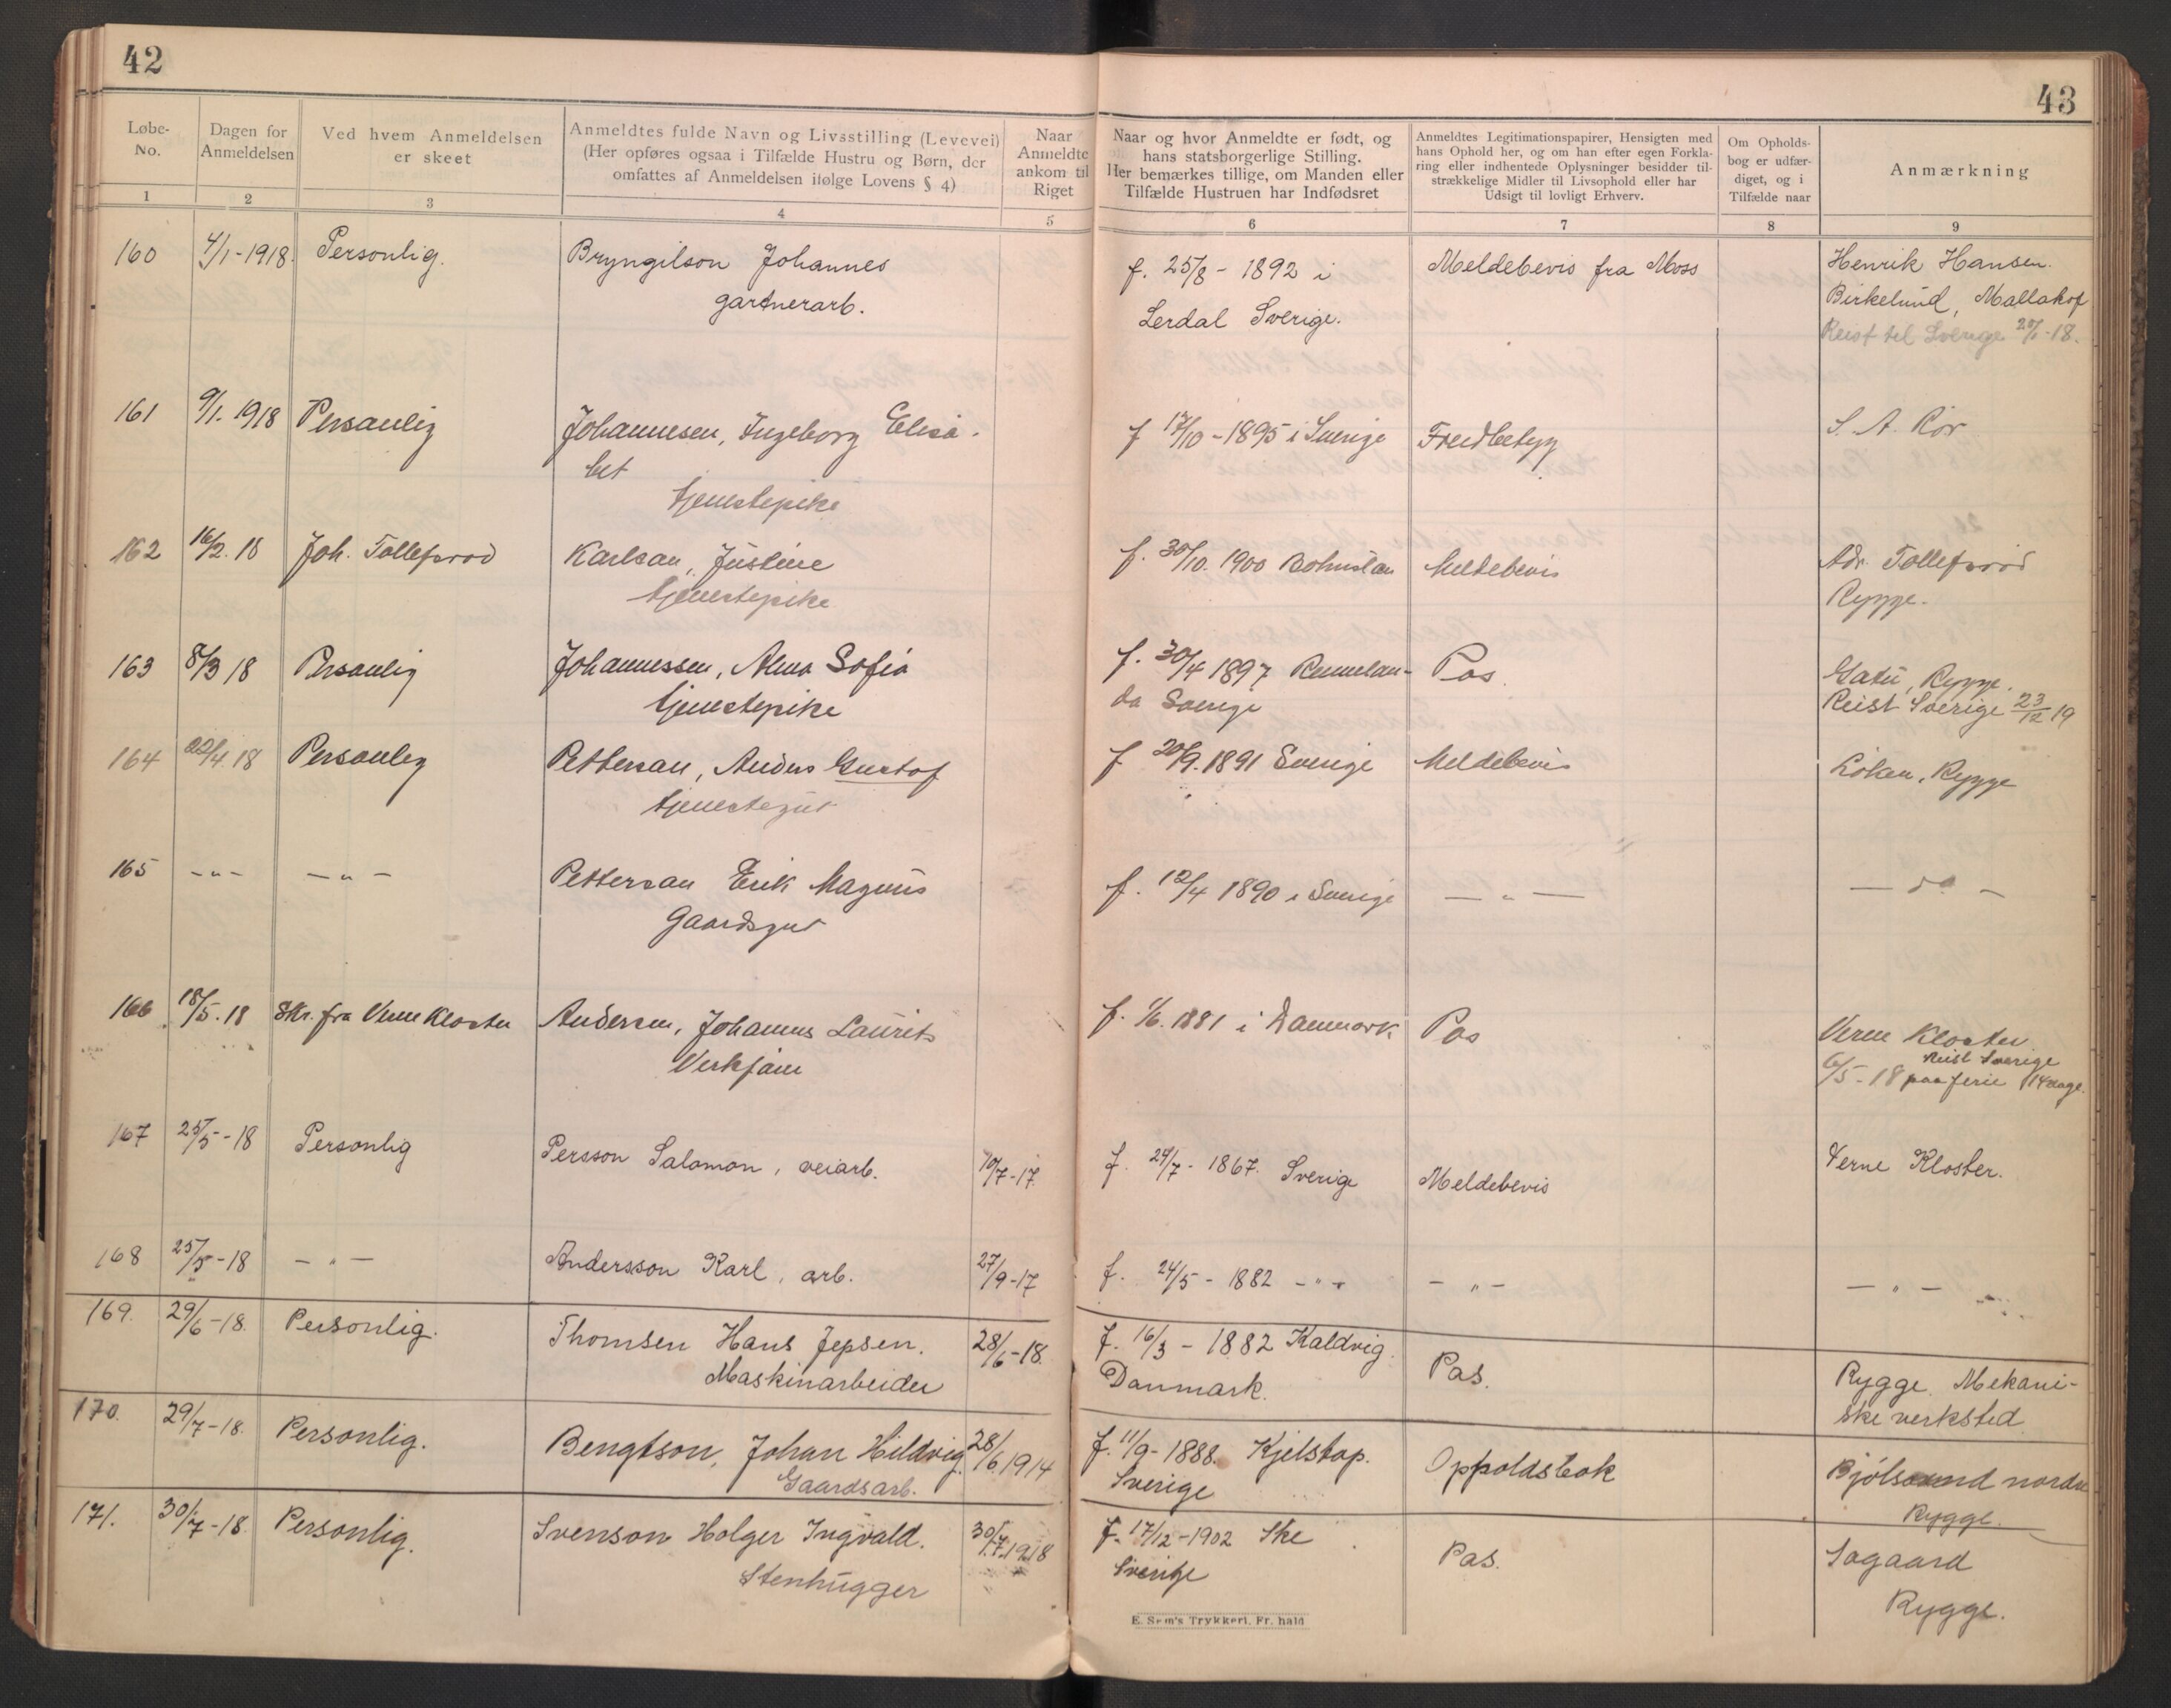 42
43
Løbe-
No.
Dagen for
Anmeldelsen
Ved hvem Anmeldelsen
er skeet
Anmeldtes fulde Navn og Livsstilling (Levevei)
(Her opføres ogsaa i Tilfælde Hustru og Børn, der
omfattes af Anmeldelsen ifølge Lovens § 4)
Naar
Anmeldte
ankom til
Riget
Naar og hvor Anmeldte er født, og
hans statsborgerlige Stilling.
Her bemærkes tillige, om Manden eller
Tilfælde Hustruen har Indfødsret
Anmeldtes Legitimationspapirer, Hensigten med
hans Ophold her, og om han efter egen Forkla-
ring eller indhentede Oplysninger besidder til-
strækkelige Midler til Livsophold eller har
Udsigt til lovligt Erhverv.
Om Opholds-
bog er udfær-
diget, og i
Tilfælde naar
Anmærkning
1 2 3 4 5 6 7 8 9
160 4/1-1918. Personlig. Bryngilson Johannes f. 25/8 - 1892 i Meldebevis fra Moss Henrik Hansen.
gartnerarb. Lerdal Sverige. Birkelund, Mallakof
Reist til Sverige 20/1-18.
161 9/1. 1918 Personlig Johannesen, Ingeborg Elisa- f 17/10-1895 i Sverige Fredbetyg S. A. Rör
bet
tjenestepike
162 16/2. 18 Joh. Tollefsrod Karlsan, Justine f. 30/10. 1900 Bohuslan Meldebevis Adr. Tollefsrod
tjenestepike Rygge.
163 8/3 18 Personlig Johannessen, Alma Sofia f. 30/4 1897 Rennelan- Pas. Gatu, Rygge.
tjenestepike da Sverige Reist Sverige 23/12 19
164 22/4. 18 Personlig Pettersan, Anders Gustof f 20/9. 1891 Sverige Meldebevis Löken, Rygge
tjenestegut
165 - " - - " - Pettersan Erik Magnus f. 12/4 1890 i Sverige - " - - do -
Gaardsgut
166 18/5. 18 Skr. fra Verne Kloster Andersen, Johannes Laurits f. 1/6. 1881 i Danmark Pas Verne Kloster
Verkfører Reist Sverige
6/5-18 paa ferie 14 dage.
167 25/5-18 Personlig Persson Salomon, veiarb. 10/7-17. f. 24/7 - 1867. Sverige Meldebevis Verne Kloster.
168 25/5-18 - " - Andersson Karl, arb. 27/9-17 f. 24/5 - 1882 - " - - " - - " -
169. 29/6-18. Personlig. Thomsen Hans Jepsen. 28/6-18. f. 16/3 - 1882 Kaldvig. Pas. Rygge Mekani-
Maskinarbeider Danmark. ske verksted
170. 29/7-18. Personlig. Bengtson, Johan Hildvig. 28/6 1914 f. 11/9-1888. Kjelstap. Oppoldsbok Bjölsound nordre
Gaardsarb. Sverige Rygge.
171. 30/7-18. Personlig. Svenson Holger Ingvald. 30/7.1918 f. 17/12-1902 Ske Pas. Sogaard
Stenhugger Sverige Rygge.
E. Sem's Trykkeri. Fr. hald